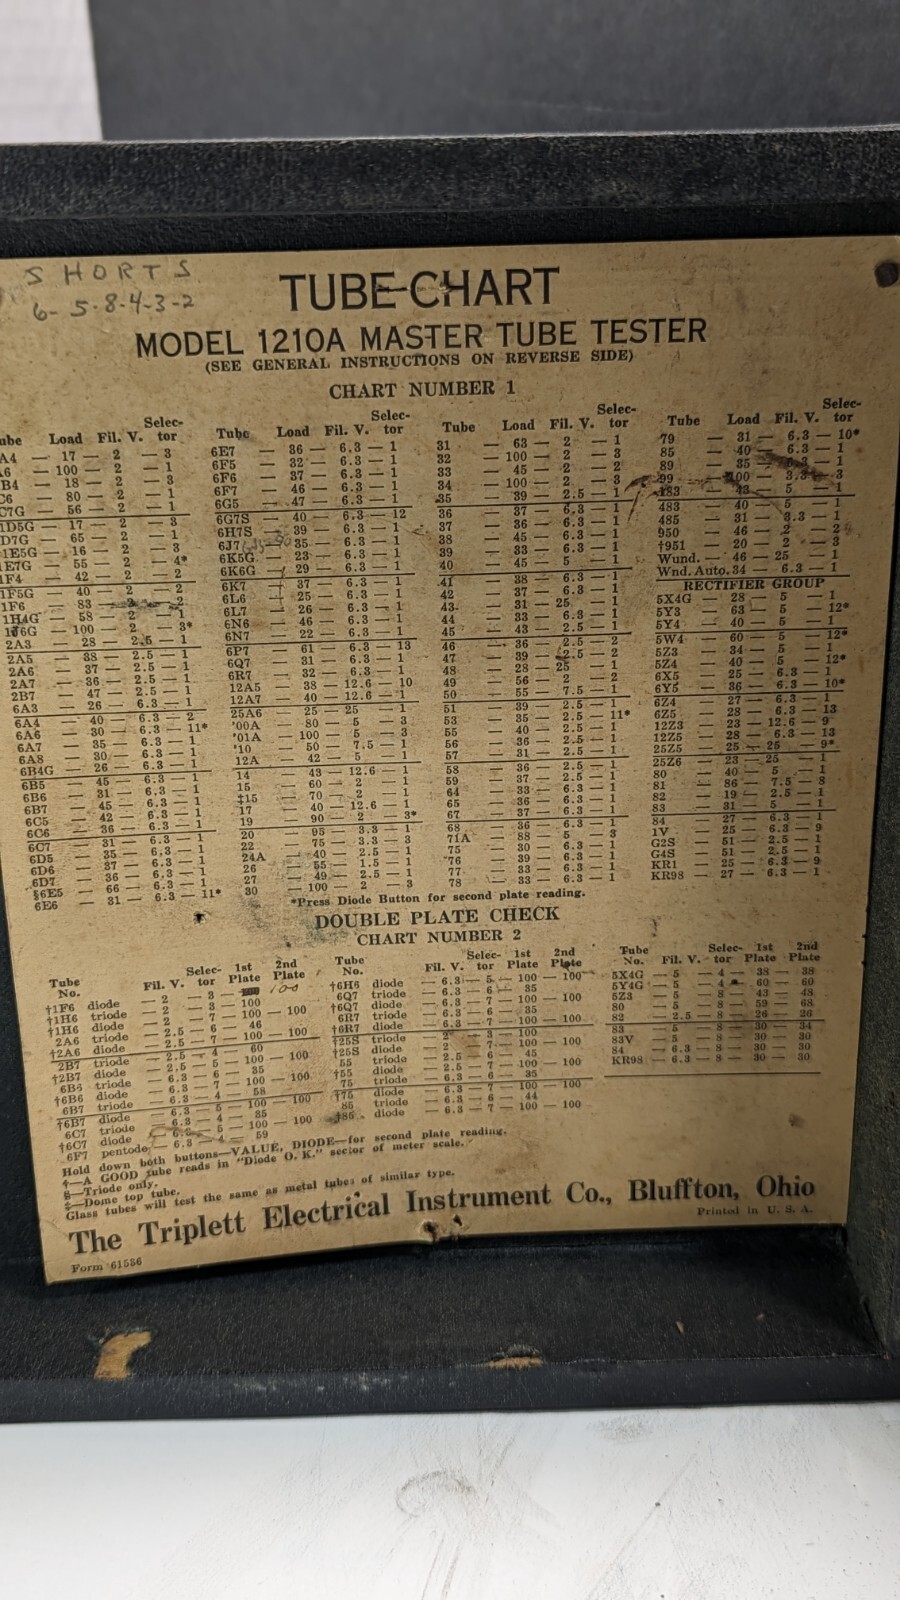 SHORTS
6-5-8-4-3-2
TUBE-CHART
MODEL 1210A MASTER TUBE TESTER
(SEE GENERAL INSTRUCTIONS ON REVERSE SIDE)
CHART NUMBER 1
Load Fil. V. Selec-tor
A4 — 17 — 2 — 3
A6 — 100 — 2 — 1
B4 — 18 — 2 — 3
C6 — 80 — 2 — 1
C7G — 56 — 2 — 1
1D5G — 17 — 2 — 3
D7G — 65 — 2 — 1
1E5G — 16 — 2 — 3
1E7G — 55 — 2 — 4*
1F4 — 42 — 2 — 2
1F5G — 40 — 2 — 2
1F6 — 83 — 2
1H4G — 58 — 2 — 1
1J6G — 100 — 2 — 3*
2A3 — 28 — 2.5 — 1
2A5 — 38 — 2.5 — 1
2A6 — 37 — 2.5 — 1
2A7 — 36 — 2.5 — 1
2B7 — 47 — 2.5 — 1
6A3 — 26 — 6.3 — 1
6A4 — 40 — 6.3 — 2
6A6 — 30 — 6.3 — 11*
6A7 — 35 — 6.3 — 1
6A8 — 30 — 6.3 — 1
6B4G — 26 — 6.3 — 1
6B5 — 45 — 6.3 — 1
6B6 — 31 — 6.3 — 1
6B7 — 45 — 6.3 — 1
6C5 — 42 — 6.3 — 1
6C6 — 36 — 6.3 — 1
6C7 — 31 — 6.3 — 1
6D5 — 35 — 6.3 — 1
6D6 — 37 — 6.3 — 1
6D7 — 36 — 6.3 — 1
§6E5 — 66 — 6.3 — 1
6E6 — 31 — 6.3 — 11*
Tube Load Fil. V. Selec-tor
6E7 — 36 — 6.3 — 1
6F5 — 32 — 6.3 — 1
6F6 — 37 — 6.3 — 1
6F7 — 46 — 6.3 — 1
6G5 — 47 — 6.3 — 1
6G7S — 40 — 6.3 — 12
6H7S — 39 — 6.3 — 1
6J7 — 35 — 6.3 — 1
6K5G — 23 — 6.3 — 1
6K6G — 29 — 6.3 — 1
6K7 — 37 — 6.3 — 1
6L6 — 25 — 6.3 — 1
6L7 — 26 — 6.3 — 1
6N6 — 46 — 6.3 — 1
6N7 — 22 — 6.3 — 1
6P7 — 61 — 6.3 — 13
6Q7 — 31 — 6.3 — 1
6R7 — 32 — 6.3 — 1
12A5 — 38 — 12.6 — 10
12A7 — 40 — 12.6 — 1
25A6 — 25 — 25 — 1
'00A — 80 — 5 — 3
'01A — 100 — 5 — 3
'10 — 50 — 7.5 — 1
12A — 42 — 5 — 1
14 — 43 — 12.6 — 1
15 — 60 — 2 — 1
‡15 — 70 — 2 — 1
17 — 40 — 12.6 — 1
19 — 90 — 2 — 3*
20 — 95 — 3.3 — 1
22 — 75 — 3.3 — 3
24A — 40 — 2.5 — 1
26 — 55 — 1.5 — 1
27 — 49 — 2.5 — 1
30 — 100 — 2 — 3
Tube Load Fil. V. Selec-tor
31 — 63 — 2 — 1
32 — 100 — 2 — 3
33 — 45 — 2 — 2
34 — 100 — 2 — 3
35 — 39 — 2.5 — 1
36 — 37 — 6.3 — 1
37 — 36 — 6.3 — 1
38 — 45 — 6.3 — 1
39 — 33 — 6.3 — 1
40 — 45 — 5 — 1
41 — 38 — 6.3 — 1
42 — 37 — 6.3 — 1
43 — 31 — 25 — 1
44 — 33 — 6.3 — 1
45 — 43 — 2.5 — 1
46 — 36 — 2.5 — 2
47 — 39 — 2.5 — 2
48 — 28 — 25 — 1
49 — 56 — 2 — 2
50 — 55 — 7.5 — 1
51 — 39 — 2.5 — 1
53 — 35 — 2.5 — 11*
55 — 40 — 2.5 — 1
56 — 36 — 2.5 — 1
57 — 31 — 2.5 — 1
58 — 36 — 2.5 — 1
59 — 37 — 2.5 — 1
64 — 33 — 6.3 — 1
65 — 36 — 6.3 — 1
67 — 37 — 6.3 — 1
68 — 36 — 6.3 — 1
71A — 88 — 5 — 3
75 — 30 — 6.3 — 1
'76 — 39 — 6.3 — 1
77 — 33 — 6.3 — 1
78 — 33 — 6.3 — 1
Tube Load Fil. V. Selec-tor
79 — 31 — 6.3 — 10*
85 — 40 — 6.3 — 1
89 — 35 — 1
99 — 100 — 3.3 — 3
183 — 43 — 5 — 1
483 — 40 — 5 — 1
485 — 31 — 3.3 — 1
950 — 46 — 2 — 2
†951 — 20 — 2 — 3
Wund. — 46 — 25 — 1
Wnd. Auto. 34 — 6.3 — 1
RECTIFIER GROUP
5X4G — 28 — 5 — 1
5Y3 — 63 — 5 — 12*
5Y4 — 40 — 5 — 1
5W4 — 60 — 5 — 12*
5Z3 — 34 — 5 — 1
5Z4 — 40 — 5 — 12*
6X5 — 25 — 6.3 — 1
6Y5 — 36 — 6.3 — 10*
6Z4 — 27 — 6.3 — 1
6Z5 — 28 — 6.3 — 13
12Z3 — 23 — 12.6 — 9
12Z5 — 28 — 6.3 — 13
25Z5 — 25 — 25 — 9*
25Z6 — 23 — 25 — 1
80 — 40 — 5 — 1
81 — 86 — 7.5 — 8
82 — 19 — 2.5 — 1
83 — 31 — 5 — 1
84 — 27 — 6.3 — 1
1V — 25 — 6.3 — 9
G2S — 51 — 2.5 — 1
G4S — 51 — 2.5 — 1
KR1 — 25 — 6.3 — 9
KR98 — 27 — 6.3 — 1
*Press Diode Button for second plate reading.
DOUBLE PLATE CHECK
CHART NUMBER 2
Tube No. Fil. V. Selec-tor 1st Plate 2nd Plate
†1F6 diode — 2 — 3 — 100
†1H6 triode — 2 — 3 — 100
†1H6 diode — 2 — 7 — 100 — 100
2A6 triode — 2.5 — 6 — 46
†2A6 diode — 2.5 — 7 — 100 — 100
2B7 triode — 2.5 — 4 — 60
†2B7 diode — 2.5 — 5 — 100 — 100
6B6 triode — 6.3 — 6 — 35
†6B6 diode — 6.3 — 7 — 100 — 100
6B7 triode — 6.3 — 4 — 58
†6B7 diode — 6.3 — 5 — 100 — 100
6C7 triode — 6.3 — 4 — 85
†6C7 diode — 5 — 100 — 100
6F7 pentode — 6.3 — 4 — 59
Tube No. Fil. V. Selec-tor 1st Plate 2nd Plate
†6H6 diode — 6.3 — 5 — 100 — 100
6Q7 triode — 6.3 — 6 — 35
†6Q7 diode — 6.3 — 7 — 100 — 100
6R7 triode — 6.3 — 6 — 35
†6R7 diode — 6.3 — 7 — 100 — 100
†25S triode — 2 — 3 — 100
†25S diode — 2 — 7 — 100 — 100
55 triode — 2.5 — 6 — 45
†55 diode — 2.5 — 7 — 100 — 100
75 triode — 6.3 — 6 — 35
†75 diode — 6.3 — 7 — 100 — 100
85 triode — 6.3 — 6 — 44
†85 diode — 6.3 — 7 — 100 — 100
Tube No. Fil. V. Selec-tor 1st Plate 2nd Plate
5X4G — 5 — 4 — 38 — 38
5Y4G — 5 — 4 — 60 — 60
5Z3 — 5 — 8 — 43 — 48
80 — 5 — 8 — 59 — 68
82 — 2.5 — 8 — 26 — 26
83 — 5 — 8 — 30 — 34
83V — 5 — 8 — 30 — 30
84 — 6.3 — 8 — 30 — 30
KR98 — 6.3 — 8 — 30 — 30
Hold down both buttons—VALUE, DIODE—for second plate reading.
†—A GOOD tube reads in "Diode O. K." sector of meter scale.
§—Triode only.
‡—Dome top tube.
Glass tubes will test the same as metal tubes of similar type.
The Triplett Electrical Instrument Co., Bluffton, Ohio
Printed in U. S. A.
Form 61536